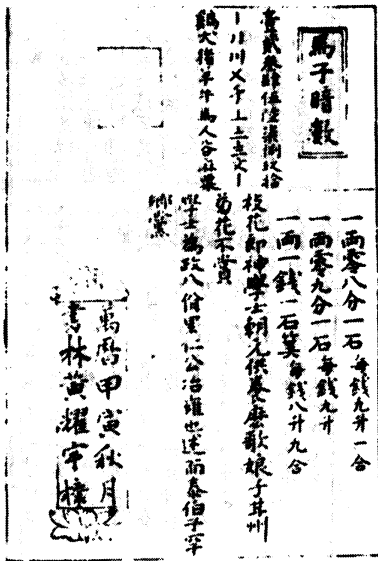 馬子暗數
壹貳叁肆伍陸柒捌玖拾
〡〢〣〤〥〦〧〨〩〡
鷄犬猪羊牛馬人谷
一兩零八分一石每錢九升一合
一兩零九分一石每錢九升
一兩一錢一石算每錢八升九合
學士朝元供養 歌娘子 州
菊花不賞
學士為政八佾里仁公冶雍也述而泰伯子罕
鄉黨
萬曆甲寅秋月
書林黃耀宇梓